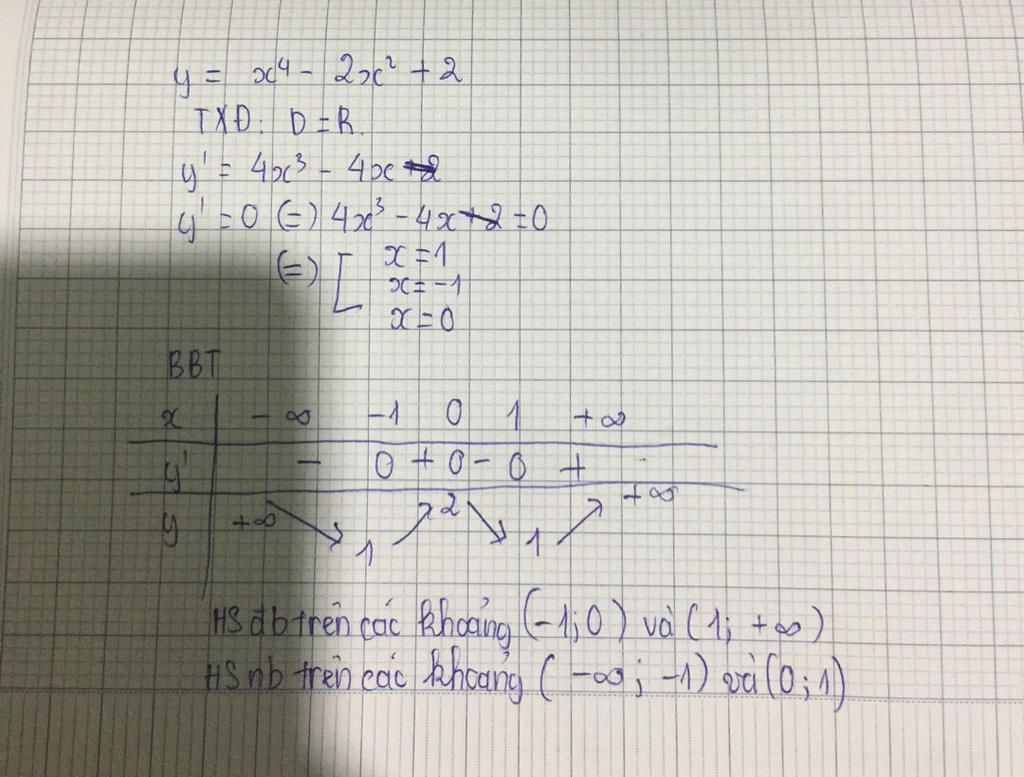 y = x⁴ - 2x² + 2
TXĐ: D = R.
y' = 4x³ - 4x
y' = 0 (=) 4x³ - 4x = 0
(=) [ x = 1
x = -1
x = 0
BBT
x -∞ -1 0 1 +∞
y' - 0 + 0 - 0 +
y +∞ ↘ 1 ↗ 2 ↘ 1 ↗ +∞
HS đb trên các khoảng (-1; 0) và (1; +∞)
HS nb trên các khoảng (-∞; -1) và (0; 1)